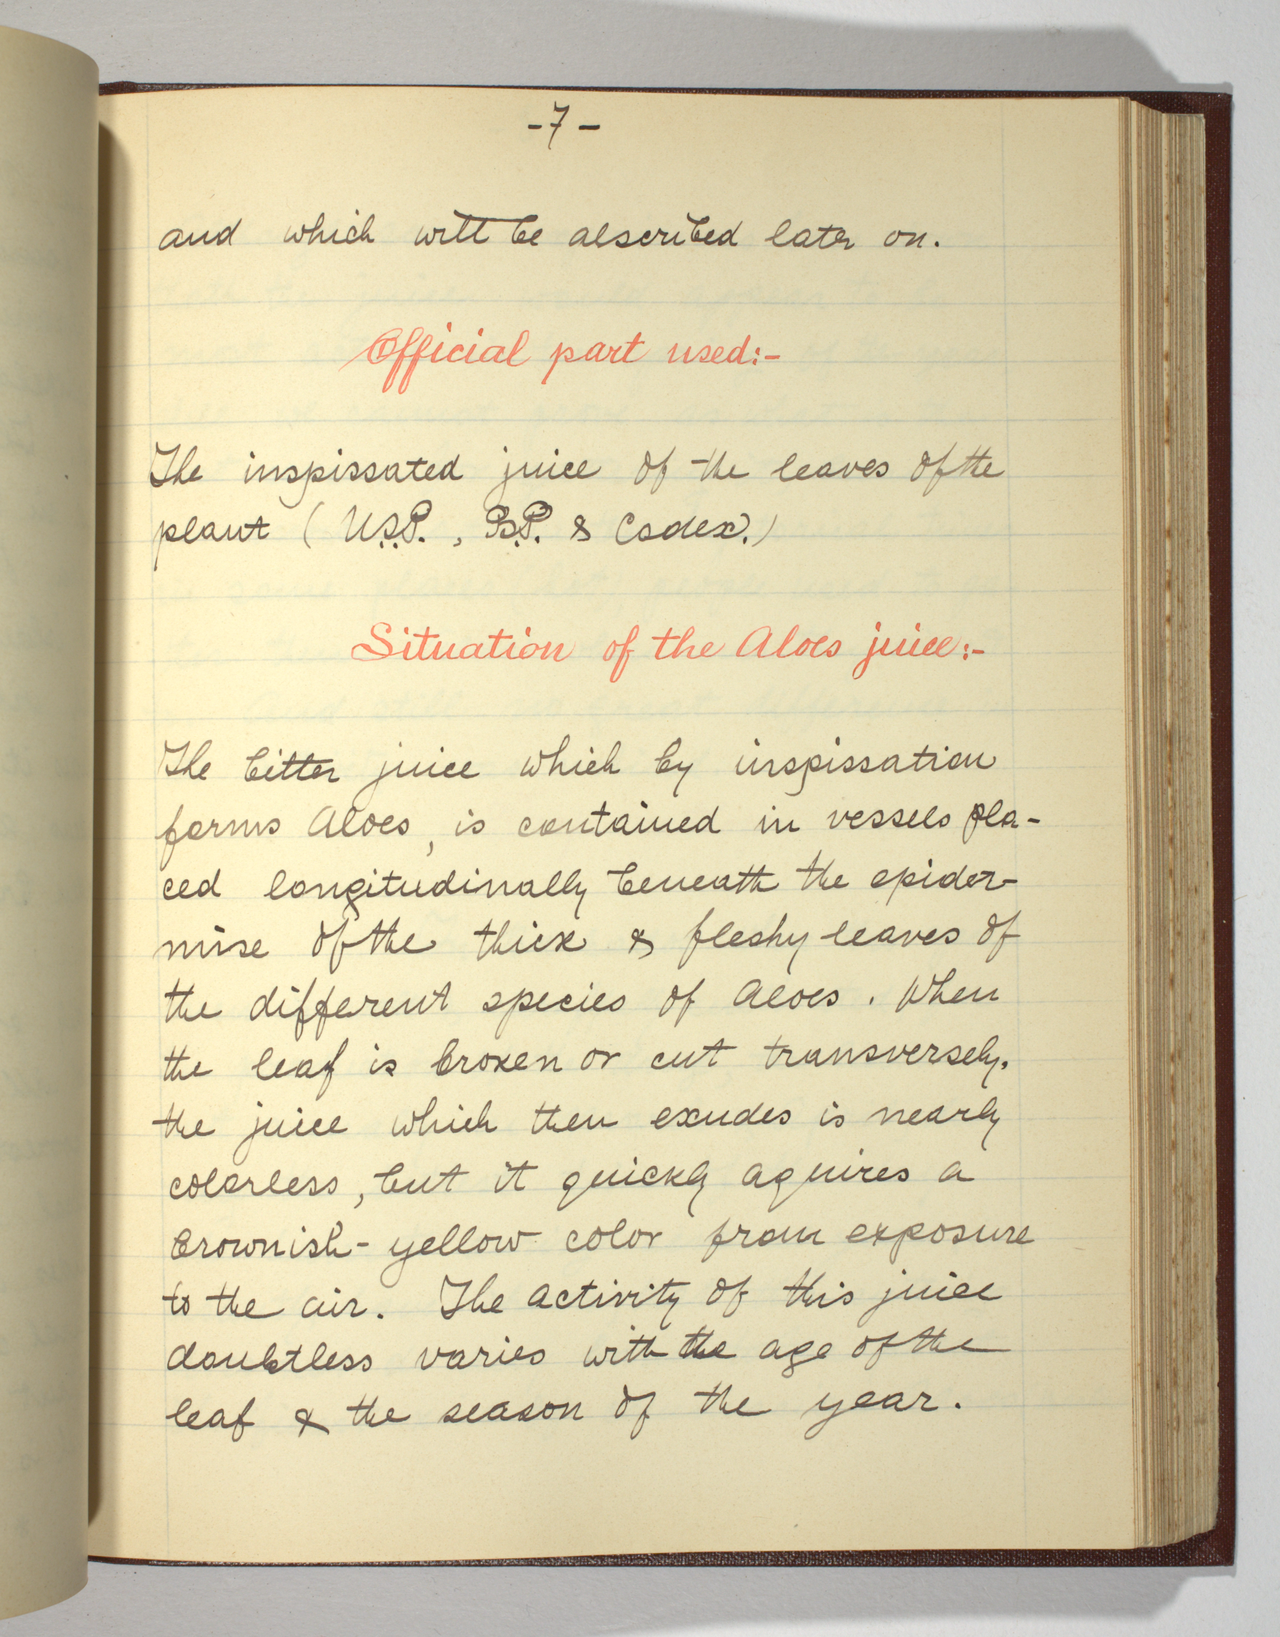 -7-
and which will be described later on.
Official part used:-
The inspissated juice of the leaves of the
plant (U.S.P., B.P. & Codex.)
Situation of the Aloes juice:-
The bitter juice which by inspissation
forms Aloes, is contained in vessels pla-
ced longitudinally beneath the epider-
mise of the thick & fleshy leaves of
the different species of Aloes. When
the leaf is broken or cut transversely,
the juice which then exudes is nearly
colorless, but it quickly aquires a
brownish-yellow color from exposure
to the air. The activity of this juice
doubtless varies with the age of the
leaf & the season of the year.